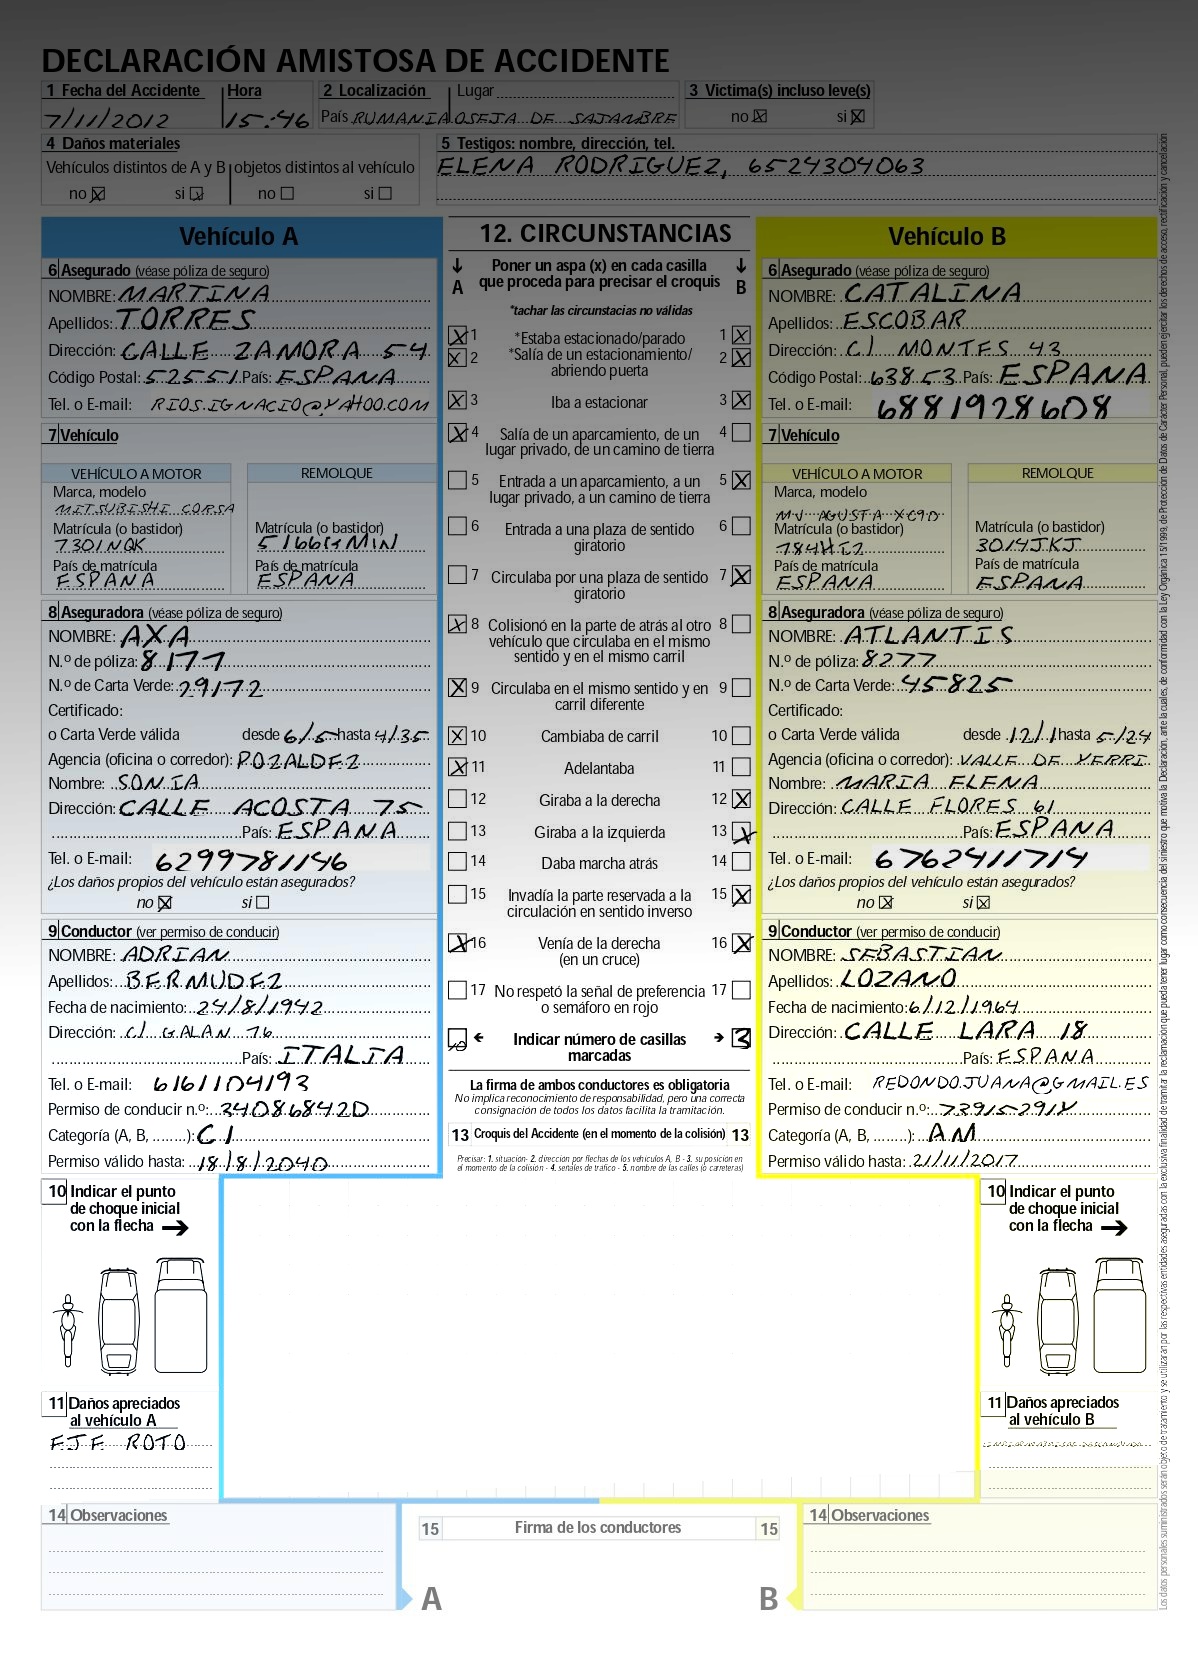 DECLARACIÓN AMISTOSA DE ACCIDENTE
1 Fecha del Accidente Hora 2 Localización Lugar 3 Victima(s) incluso leve(s)
7/11/2012 15:46 País RUMANIA OSEJA DE SAJAMBRE no X si X
4 Daños materiales 5 Testigos: nombre, dirección, tel.
Vehículos distintos de A y B objetos distintos al vehículo ELENA RODRIGUEZ, 6524304063
no X si X no si
Vehículo A
6 Asegurado (véase póliza de seguro)
NOMBRE: MARTINA
Apellidos: TORRES
Dirección: CALLE ZAMORA 54
Código Postal: 52551 País: ESPANA
Tel. o E-mail: RIOS.IGNACIO@YAHOO.COM
7 Vehículo
VEHÍCULO A MOTOR REMOLQUE
Marca, modelo
MITSUBISHI CORSA
Matrícula (o bastidor) Matrícula (o bastidor)
7301NQK 5166GMIN
País de matrícula País de matrícula
ESPANA ESPANA
8 Aseguradora (véase póliza de seguro)
NOMBRE: AXA
N.º de póliza: 8177
N.º de Carta Verde: 29172
Certificado:
o Carta Verde válida desde 6/5 hasta 4/35
Agencia (oficina o corredor): POZALDEZ
Nombre: SONIA
Dirección: CALLE ACOSTA 75
País: ESPANA
Tel. o E-mail: 6299781146
¿Los daños propios del vehículo están asegurados?
no X si
9 Conductor (ver permiso de conducir)
NOMBRE: ADRIAN
Apellidos: BERMUDEZ
Fecha de nacimiento: 24/8/1942
Dirección: C/ GALAN 76
País: ITALIA
Tel. o E-mail: 6161104193
Permiso de conducir n.º: 34086842D
Categoría (A, B, ........): C1
Permiso válido hasta: 18/8/2040
12. CIRCUNSTANCIAS
A Poner un aspa (x) en cada casilla que proceda para precisar el croquis B
*tachar las circunstacias no válidas
X 1 *Estaba estacionado/parado 1 X
X 2 *Salía de un estacionamiento/ 2 X
abriendo puerta
X 3 Iba a estacionar 3 X
X 4 Salía de un aparcamiento, de un 4
lugar privado, de un camino de tierra
5 Entrada a un aparcamiento, a un 5 X
lugar privado, a un camino de tierra
6 Entrada a una plaza de sentido 6
giratorio
7 Circulaba por una plaza de sentido 7 X
giratorio
X 8 Colisionó en la parte de atrás al otro 8
vehículo que circulaba en el mismo
sentido y en el mismo carril
X 9 Circulaba en el mismo sentido y en 9
carril diferente
X 10 Cambiaba de carril 10
X 11 Adelantaba 11
12 Giraba a la derecha 12 X
13 Giraba a la izquierda 13 X
14 Daba marcha atrás 14
15 Invadía la parte reservada a la 15 X
circulación en sentido inverso
X 16 Venía de la derecha 16 X
(en un cruce)
17 No respetó la señal de preferencia 17
o semáforo en rojo
10 Indicar número de casillas 3
marcadas
La firma de ambos conductores es obligatoria
No implica reconocimiento de responsabilidad, pero una correcta
consignación de todos los datos facilita la tramitación.
13 Croquis del Accidente (en el momento de la colisión) 13
Precisar: 1. situación- 2. dirección por flechas de los vehículos A, B - 3. su posición en
el momento de la colisión - 4. señales de trafico - 5. nombre de las calles (o carreteras)
Vehículo B
6 Asegurado (véase póliza de seguro)
NOMBRE: CATALINA
Apellidos: ESCOBAR
Dirección: C/ MONTES 43
Código Postal: 63853 País: ESPANA
Tel. o E-mail: 6881928608
7 Vehículo
VEHÍCULO A MOTOR REMOLQUE
Marca, modelo
MV AGUSTA XC90
Matrícula (o bastidor) Matrícula (o bastidor)
784HIZ 3014JKJ
País de matrícula País de matrícula
ESPANA ESPANA
8 Aseguradora (véase póliza de seguro)
NOMBRE: ATLANTIS
N.º de póliza: 8277
N.º de Carta Verde: 45825
Certificado:
o Carta Verde válida desde 12/1 hasta 5/24
Agencia (oficina o corredor): VALLE DE YERRI
Nombre: MARIA ELENA
Dirección: CALLE FLORES 61
País: ESPANA
Tel. o E-mail: 6762411714
¿Los daños propios del vehículo están asegurados?
no X si X
9 Conductor (ver permiso de conducir)
NOMBRE: SEBASTIAN
Apellidos: LOZANO
Fecha de nacimiento: 6/12/1964
Dirección: CALLE LARA 18
País: ESPANA
Tel. o E-mail: REDONDOJUANA@GMAIL.ES
Permiso de conducir n.º: 73915291X
Categoría (A, B, ........): AM
Permiso válido hasta: 21/11/2017
10 Indicar el punto
de choque inicial
con la flecha
11 Daños apreciados
al vehículo A
EJE ROTO
10 Indicar el punto
de choque inicial
con la flecha
11 Daños apreciados
al vehículo B
14 Observaciones
15 Firma de los conductores 15
A B
14 Observaciones
Los datos personales suministrados serán objeto de tratamiento y se utilizaran por las respectivas entidades aseguradas con la exclusiva finalidad de tramitar la reclamación que pueda tener lugar como consecuencia del siniestro que motiva la Declaración, ante la cuales, de conformidad con la Ley Orgánica 15/1999, de Protección de Datos de Carácter Personal, pueden ejercitar los derechos de acceso, rectificación y cancelación